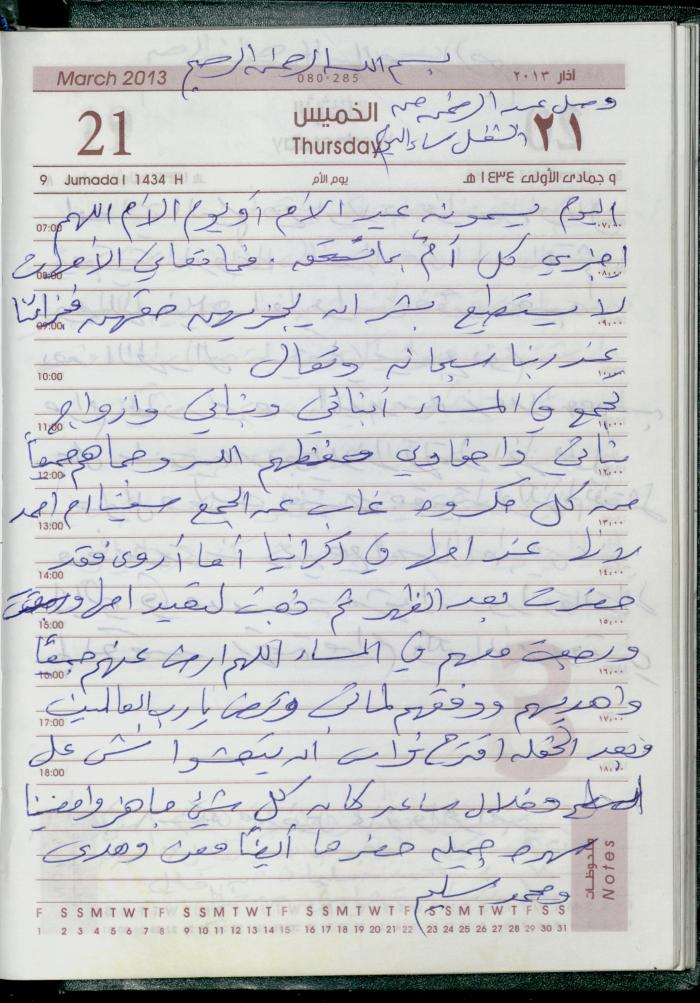 بسم الله الرحمن الرحيم
March 2013 080-285 آذار ٢٠١٣
وصل عبد الرحمن من
21 الخميس ٢١
Thursday الشغل مساء اليوم
9 Jumada I 1434 H يوم الأم ٩ جمادى الأولى ١٤٣٤ هـ
اليوم يسمونه عيد الأم أو يوم الأم اللهم
07:00 ٠٧,٠٠
اجزي كل أم بما تستحقه . فما تعاني الأمهات
08:00 ٠٨,٠٠
لا يستطيع بشر ان يجزيهن حقهن فجزائنا
09:00 ٠٩,٠٠
عند ربنا سبحانه وتعالى
10:00 ١٠,٠٠
تجمع في المساء أبنائي وبناتي وازواج
11:00 ١١,٠٠
بناتي واحفادي حفظهم الله وحماهم جميعاً
12:00 ١٢,٠٠
من كل مكروه غاب عن الجمع ام احمد
13:00 ١٣,٠٠
لازال عند اهلها في اكرانيا أما أروى فقد
14:00 ١٤,٠٠
حضرت بعد الظهر ثم ذهبت اهلها
15:00 ١٥,٠٠
ورجعت معهم في المساء اللهم ارض عنهم جميعاً
16:00 ١٦,٠٠
واهديهم ووفقهم لما تحب وترضى يا رب العالمين
17:00 ١٧,٠٠
وبعد الحفله اقترح ان يتعشوا على
18:00 ١٨,٠٠
السطح وخلال ساعه كان كل شيئ جاهز وامضينا
سهره جميله حضرها أيضاً معن وهدى
ومحمد سليم
ملاحظات Notes
F S S M T W T F S S M T W T F S S M T W T F S S M T W T F S S
1 2 3 4 5 6 7 8 9 10 11 12 13 14 15 16 17 18 19 20 21 22 23 24 25 26 27 28 29 30 31